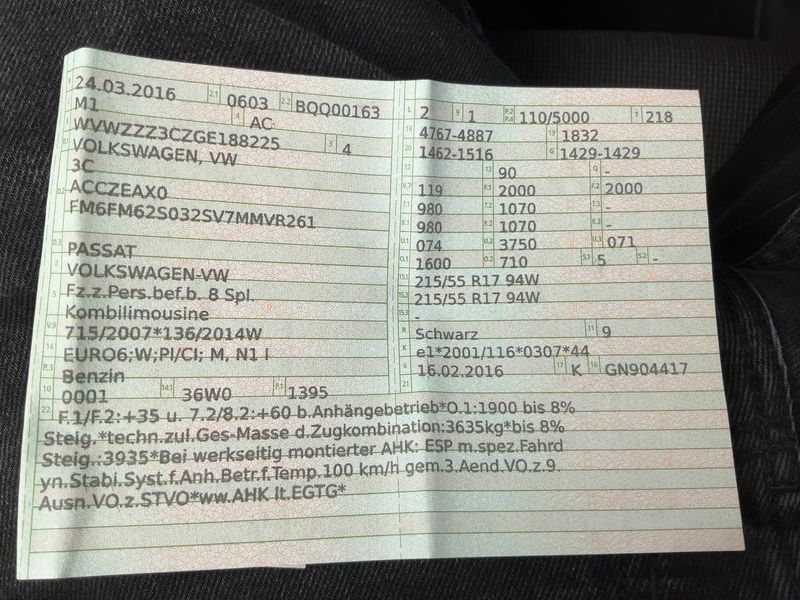 24.03.2016 2.1 0603 2.2 BQQ00163
M1 4 AC
WVWZZZ3CZGE188225 3 4
VOLKSWAGEN, VW
3C
ACCZEAX0
FM6FM62S032SV7MMVR261
D.3 PASSAT
2 VOLKSWAGEN-VW
5 Fz.z.Pers.bef.b. 8 Spl.
Kombilimousine
V.9 715/2007*136/2014W
14 EURO6;W;PI/CI; M, N1 I
P.3 Benzin
10 0001 14.1 36W0 P.1 1395
L 2 9 1 P.2 P.4 110/5000 T 218
18 4767-4887 19 1832
20 1462-1516 G 1429-1429
12 13 90 Q -
V.7 119 F.1 2000 F.2 2000
7.1 980 7.2 1070 7.3 -
8.1 980 8.2 1070 8.3 -
U.1 074 U.2 3750 U.3 071
O.1 1600 O.2 710 S.1 5 S.2 -
15.1 215/55 R17 94W
15.2 215/55 R17 94W
15.3 -
R Schwarz 11 9
K e1*2001/116*0307*44
6 16.02.2016 17 K 16 GN904417
21
22 F.1/F.2:+35 u. 7.2/8.2:+60 b.Anhängebetrieb*O.1:1900 bis 8%
Steig.*techn.zul.Ges-Masse d.Zugkombination:3635kg*bis 8%
Steig.:3935*Bei werkseitig montierter AHK: ESP m.spez.Fahrd
yn.Stabi.Syst.f.Anh.Betr.f.Temp.100 km/h gem.3.Aend.VO.z.9.
Ausn.VO.z.STVO*ww.AHK lt.EGTG*